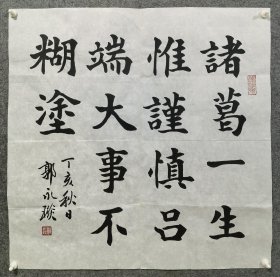 諸葛一生
惟謹慎吕
端大事不
糊塗
丁亥秋日
郭永琰